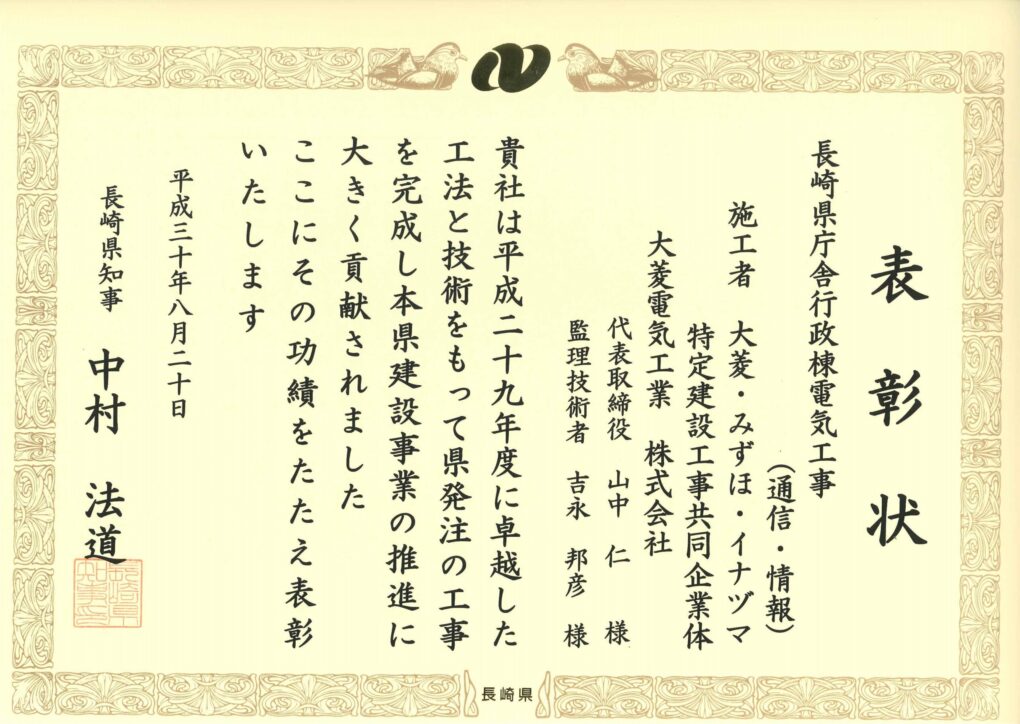 表彰状
長崎県庁舎行政棟電気工事
（通信・情報）
施工者 大菱・みずほ・イナヅマ
特定建設工事共同企業体
大菱電気工業 株式会社
代表取締役 山中 仁 様
監理技術者 吉永 邦彦 様
貴社は平成二十九年度に卓越した
工法と技術をもって県発注の工事
を完成し本県建設事業の推進に
大きく貢献されました
ここにその功績をたたえ表彰
いたします
平成三十年八月二十日
長崎県知事 中村 法道
長崎県
知事之印
長崎県